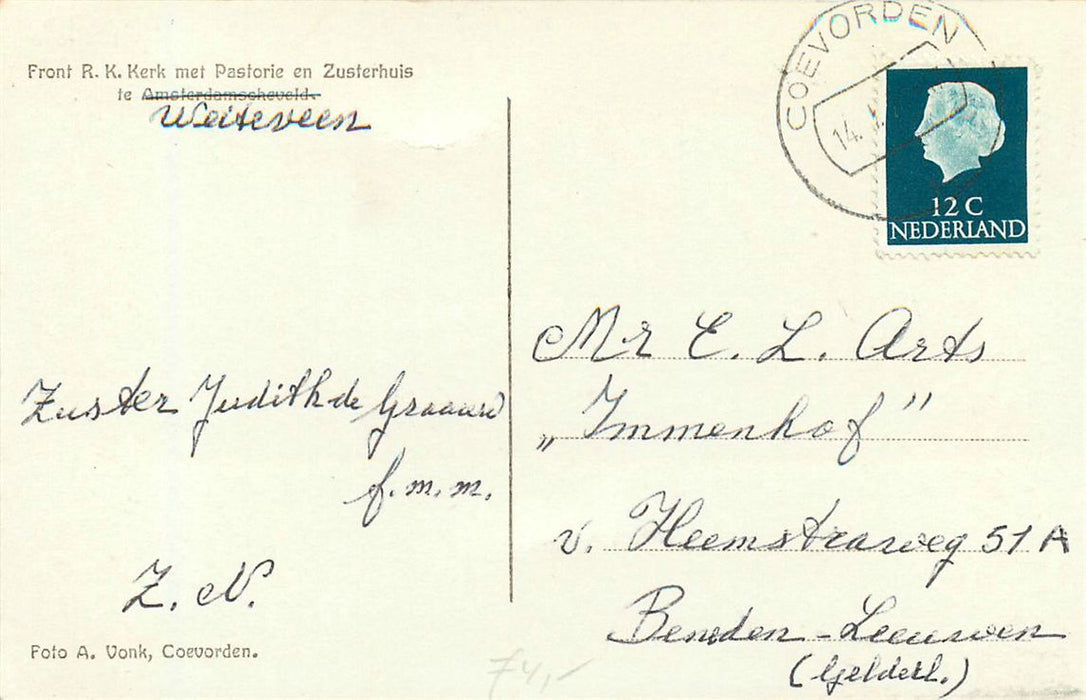 Front R. K. Kerk met Pastorie en Zusterhuis
te Amsterdamscheveld.
Weiteveen
COEVORDEN
14.
12 C
NEDERLAND
Mr E. L. Arts
„Immenhof”
v. Heemstraweg 51 A
Beneden-Leeuwen
(Gelderl.)
Zuster Judith de Graauw
f.m.m.
Z. N.
Foto A. Vonk, Coevorden.
74,-